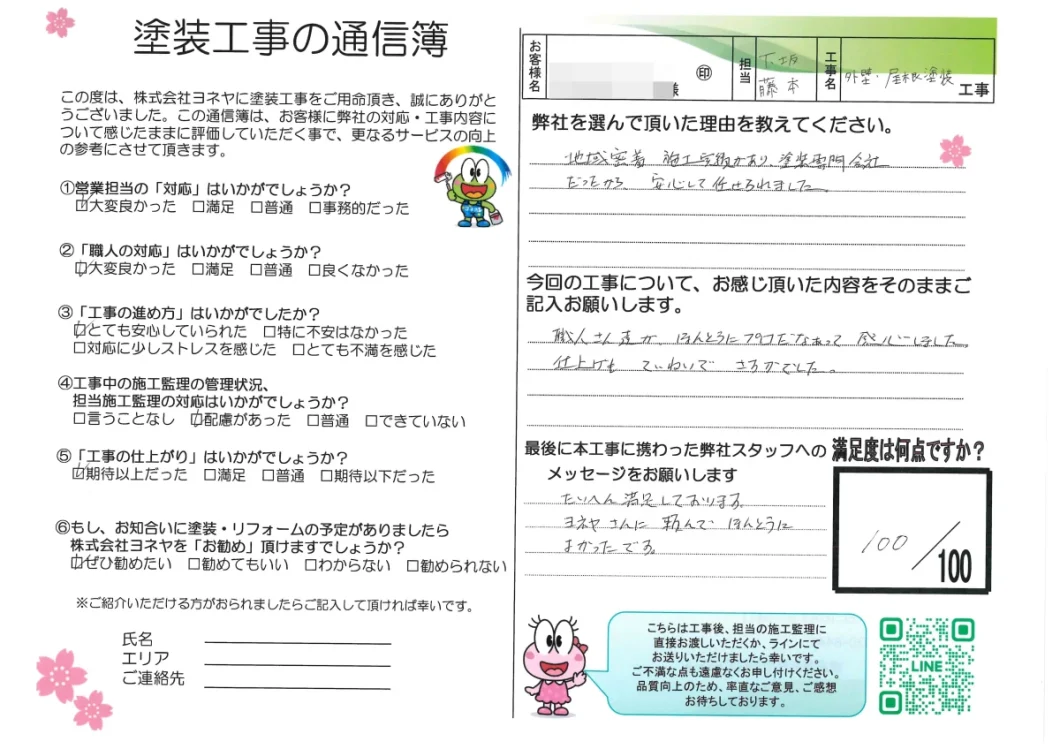 塗装工事の通信簿
この度は、株式会社ヨネヤに塗装工事をご用命頂き、誠にありがと
うございました。この通信簿は、お客様に弊社の対応・工事内容に
ついて感じたままに評価していただく事で、更なるサービスの向上
の参考にさせて頂きます。
①営業担当の「対応」はいかがでしょうか？
☑大変良かった □満足 □普通 □事務的だった
②「職人の対応」はいかがでしょうか？
☑大変良かった □満足 □普通 □良くなかった
③「工事の進め方」はいかがでしたか？
☑とても安心していられた □特に不安はなかった
□対応に少しストレスを感じた □とても不満を感じた
④工事中の施工監理の管理状況、
担当施工監理の対応はいかがでしょうか？
□言うことなし ☑配慮があった □普通 □できていない
⑤「工事の仕上がり」はいかがでしょうか？
☑期待以上だった □満足 □普通 □期待以下だった
⑥もし、お知合いに塗装・リフォームの予定がありましたら
株式会社ヨネヤを「お勧め」頂けますでしょうか？
☑ぜひ勧めたい □勧めてもいい □わからない □勧められない
※ご紹介いただける方がおられましたらご記入して頂ければ幸いです。
氏名
エリア
ご連絡先
お客様名 様 ㊞ 担当 下坂 藤本 工事名 外壁・屋根塗装 工事
弊社を選んで頂いた理由を教えてください。
地域密着 施工実績があり、塗装専門会社
だったから 安心して任せられました。
今回の工事について、お感じ頂いた内容をそのままご
記入お願いします。
職人さん達が、ほんとうにプロだなぁって 感心しました。
仕上げも ていねいで さすがでした。
最後に本工事に携わった弊社スタッフへの
メッセージをお願いします
たいへん満足しております。
ヨネヤさんに 頼んで ほんとうに
よかったです。
満足度は何点ですか？
100／100
こちらは工事後、担当の施工監理に
直接お渡しいただくか、ラインにて
お送りいただけましたら幸いです。
ご不満な点も遠慮なくお申し付けください。
品質向上のため、率直なご意見、ご感想
お待ちしております。
LINE